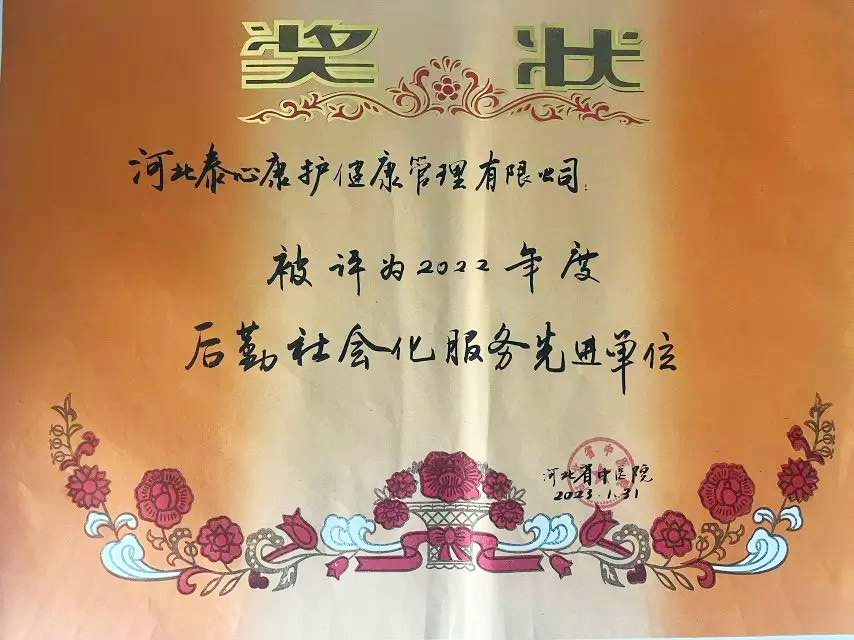 奖状
河北泰心康护健康管理有限公司：
被评为2022年度
后勤社会化服务先进单位
河北省中医院
2023.1.31